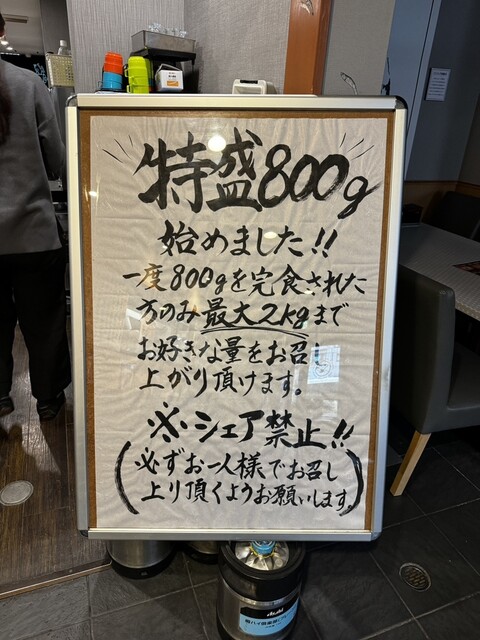 特盛800g
始めました!!
一度800gを完食された
方のみ最大2kgまで
お好きな量をお召し
上がり頂けます。
※シェア禁止!!
(必ずお一人様でお召し
上り頂くようお願いします。)
Asahi